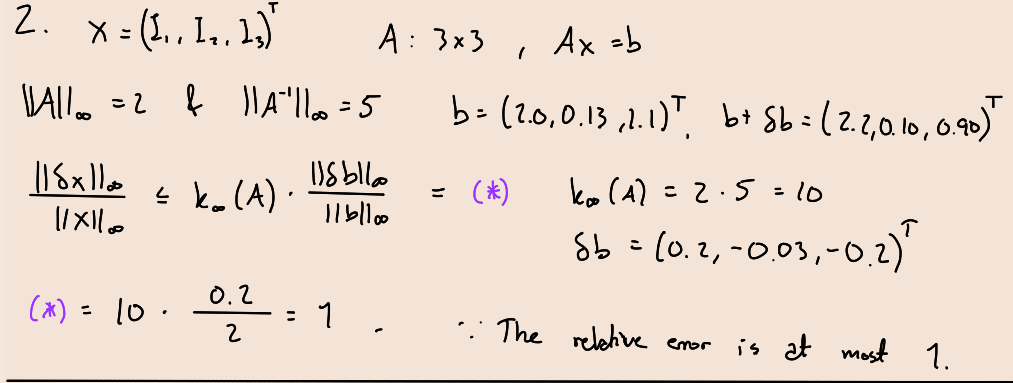 2. x = (I₁, I₂, I₃)ᵀ A : 3x3 , Ax = b
||A||∞ = 2 & ||A⁻¹||∞ = 5 b = (2.0, 0.13, 1.1)ᵀ, b + δb = (2.2, 0.10, 0.90)ᵀ
||δx||∞ / ||x||∞ ≤ k∞(A) · ||δb||∞ / ||b||∞ = (*) k∞(A) = 2 · 5 = 10
δb = (0.2, -0.03, -0.2)ᵀ
(*) = 10 · 0.2 / 2 = 1 . ∵ The relative error is at most 1.